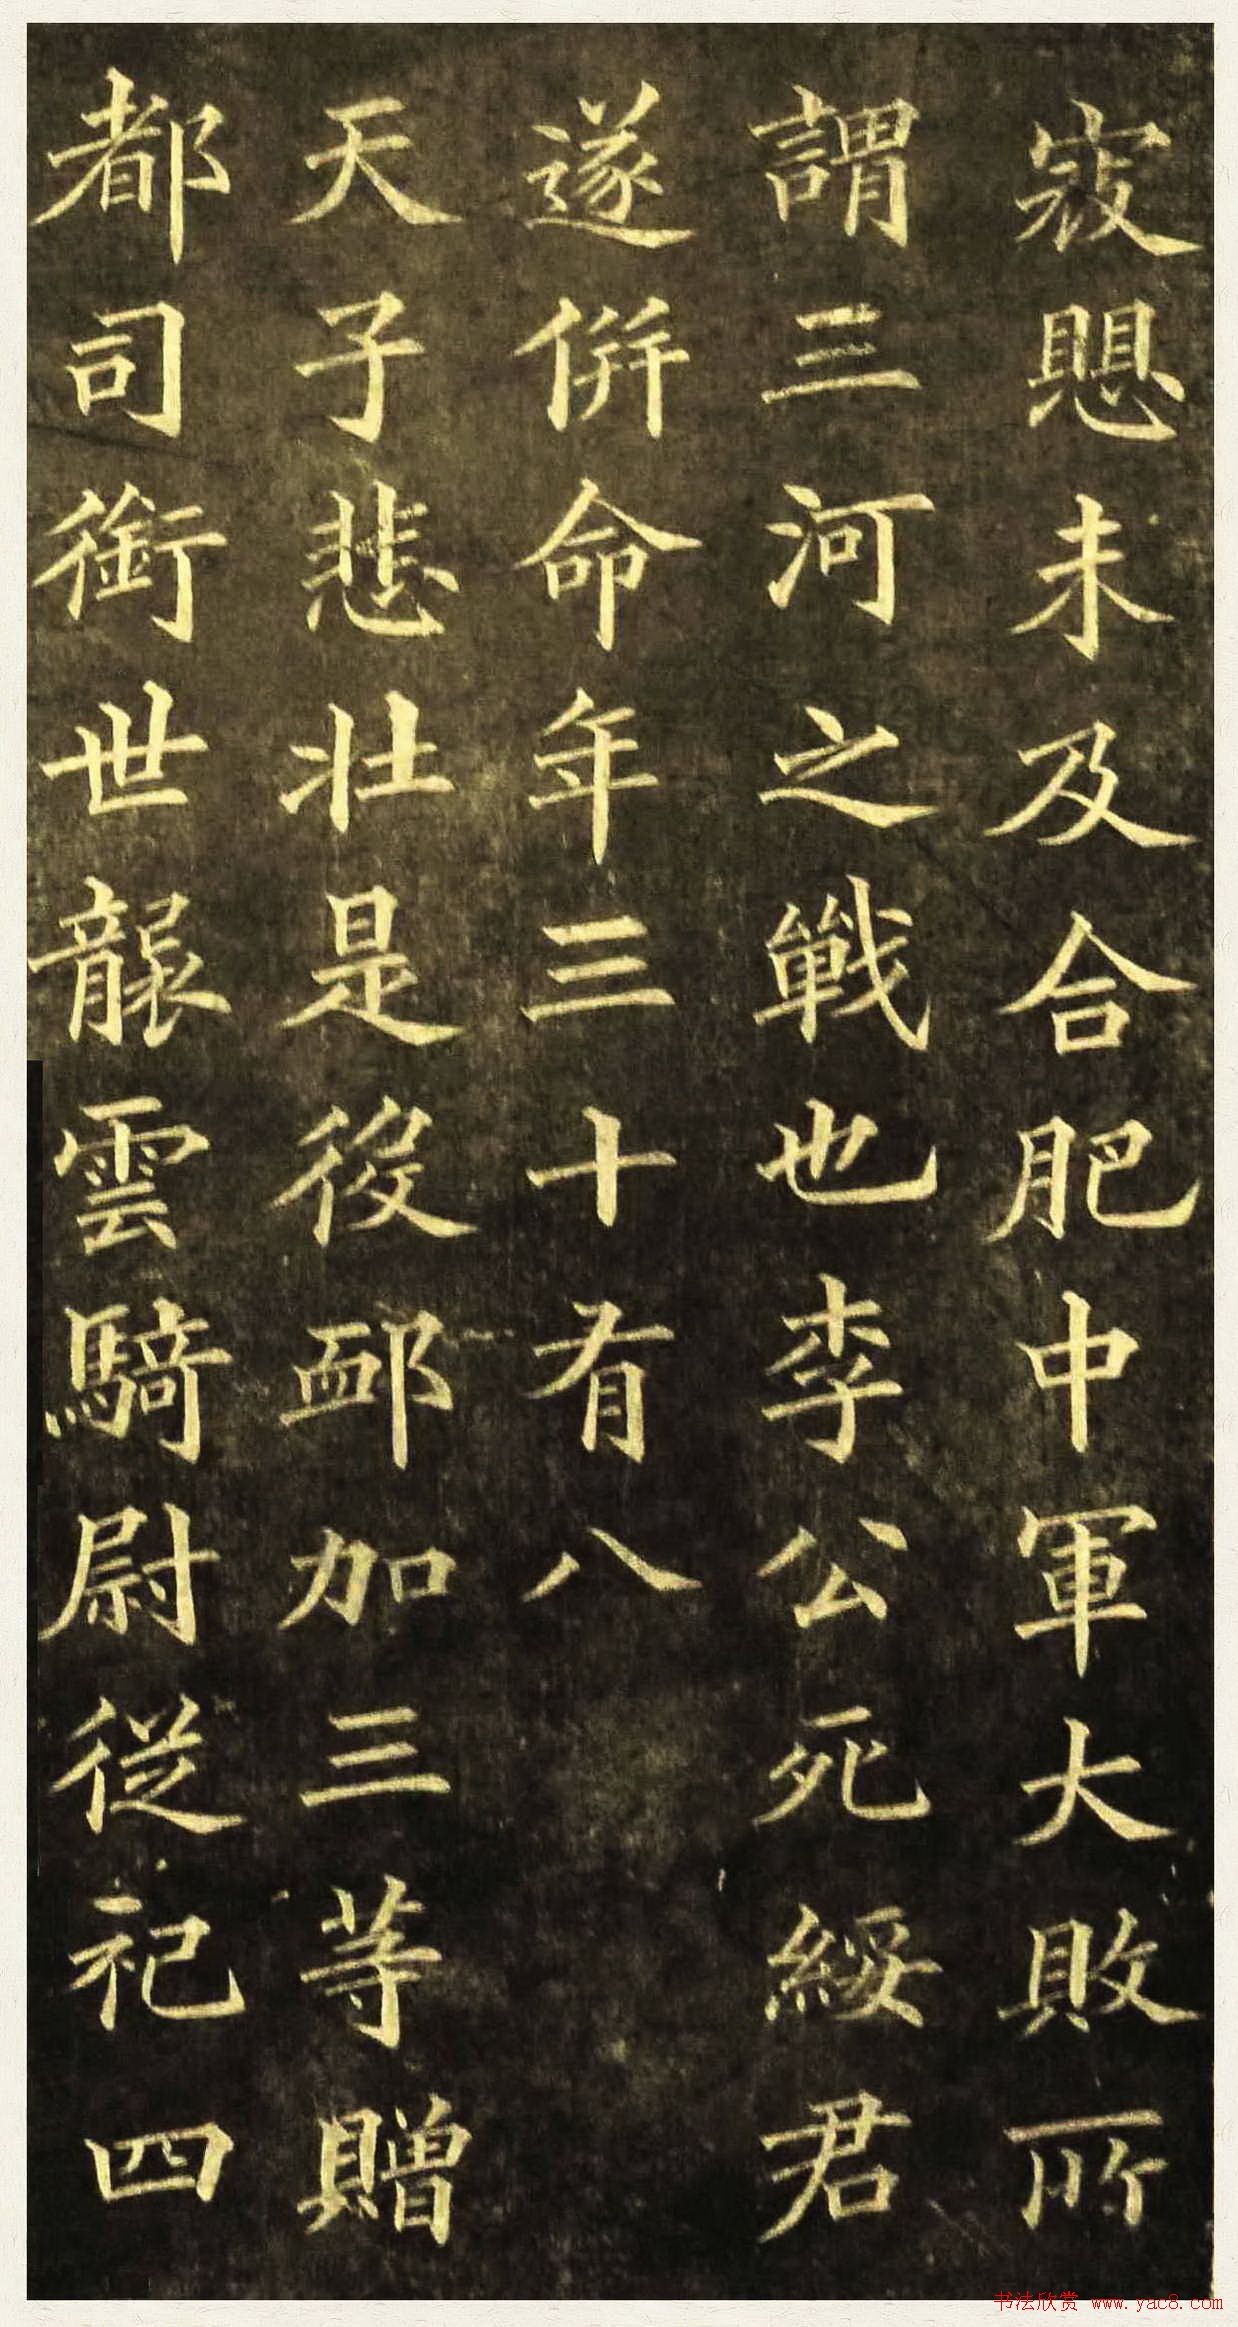 寂愳未及合肥中軍大敗所
謂三河之戰也李公死綏君
遂併命年三十有八
天子悲壯是役邺加三等贈
都司銜世襲雲騎尉從祀四
书法欣赏 www.yac8.com